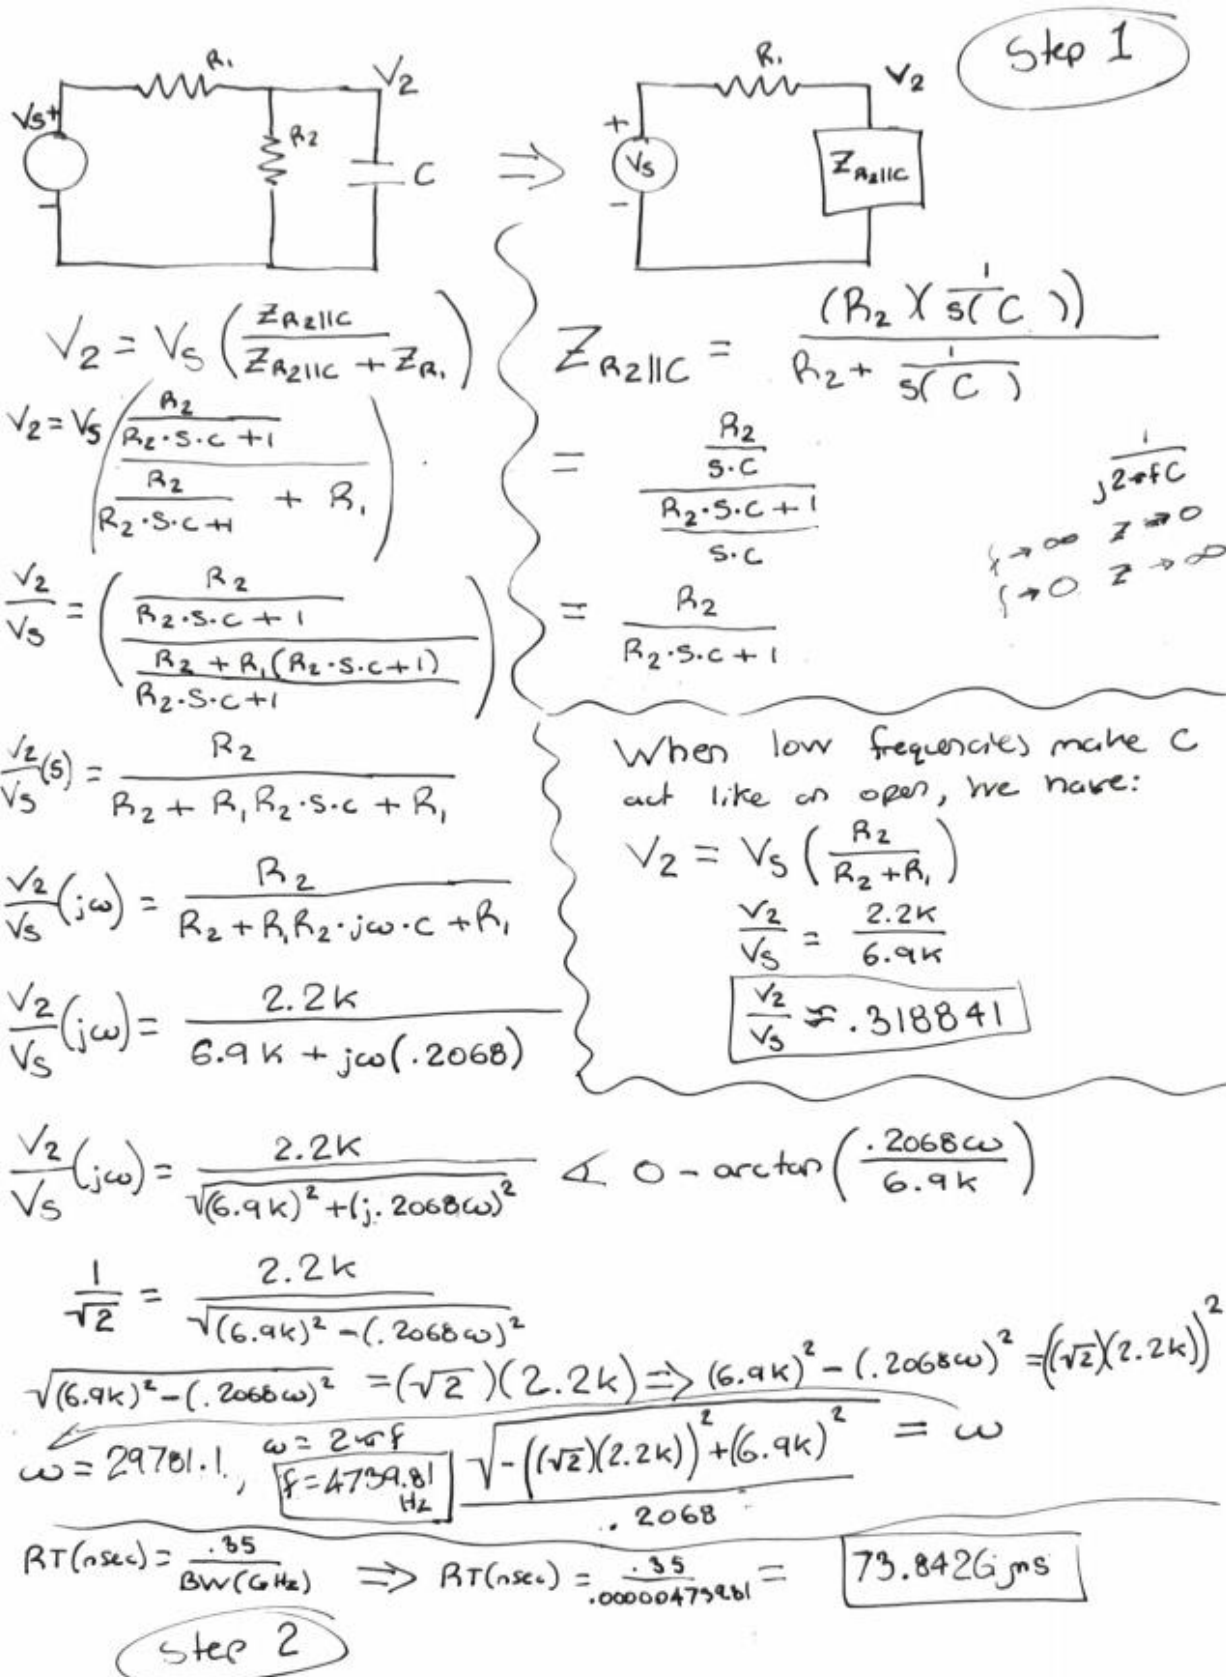 Step 1
R₁ V₂
Vs +
R₂
C
-
⇒
R₁ V₂
+
Vs
-
Z_R₂||C
V₂ = Vs ( Z_R₂||C / (Z_R₂||C + Z_R₁) )
V₂ = Vs ( (R₂ / (R₂·S·C + 1)) / (R₂ / (R₂·S·C + 1) + R₁) )
V₂/Vs = ( (R₂ / (R₂·S·C + 1)) / ((R₂ + R₁(R₂·S·C + 1)) / (R₂·S·C + 1)) )
V₂/Vs (s) = R₂ / (R₂ + R₁R₂·S·C + R₁)
V₂/Vs (jω) = R₂ / (R₂ + R₁R₂·jω·C + R₁)
V₂/Vs (jω) = 2.2K / (6.9K + jω(.2068))
Z_R₂||C = (R₂)(1/s(C)) / (R₂ + 1/s(C))
= (R₂ / S·C) / ((R₂·S·C + 1) / S·C)
= R₂ / (R₂·S·C + 1)
1 / j2πfC
f → ∞ Z → 0
f → 0 Z → ∞
When low frequencies make C
act like an open, we have:
V₂ = Vs ( R₂ / (R₂ + R₁) )
V₂/Vs = 2.2K / 6.9K
V₂/Vs ≈ .318841
V₂/Vs (jω) = 2.2K / √((6.9K)² + (j.2068ω)²) ∡ 0 - arctan( .2068ω / 6.9K )
1/√2 = 2.2K / √((6.9K)² - (.2068ω)²)
√((6.9K)² - (.2068ω)²) = (√2)(2.2K) ⇒ (6.9K)² - (.2068ω)² = ((√2)(2.2K))²
ω = 29781.1, ω = 2πf f = 4739.81 Hz √(-((√2)(2.2K))² + (6.9K)²) / .2068 = ω
RT(nsec) = .35 / BW(GHz) ⇒ RT(nsec) = .35 / .00000473981 =
Step 2